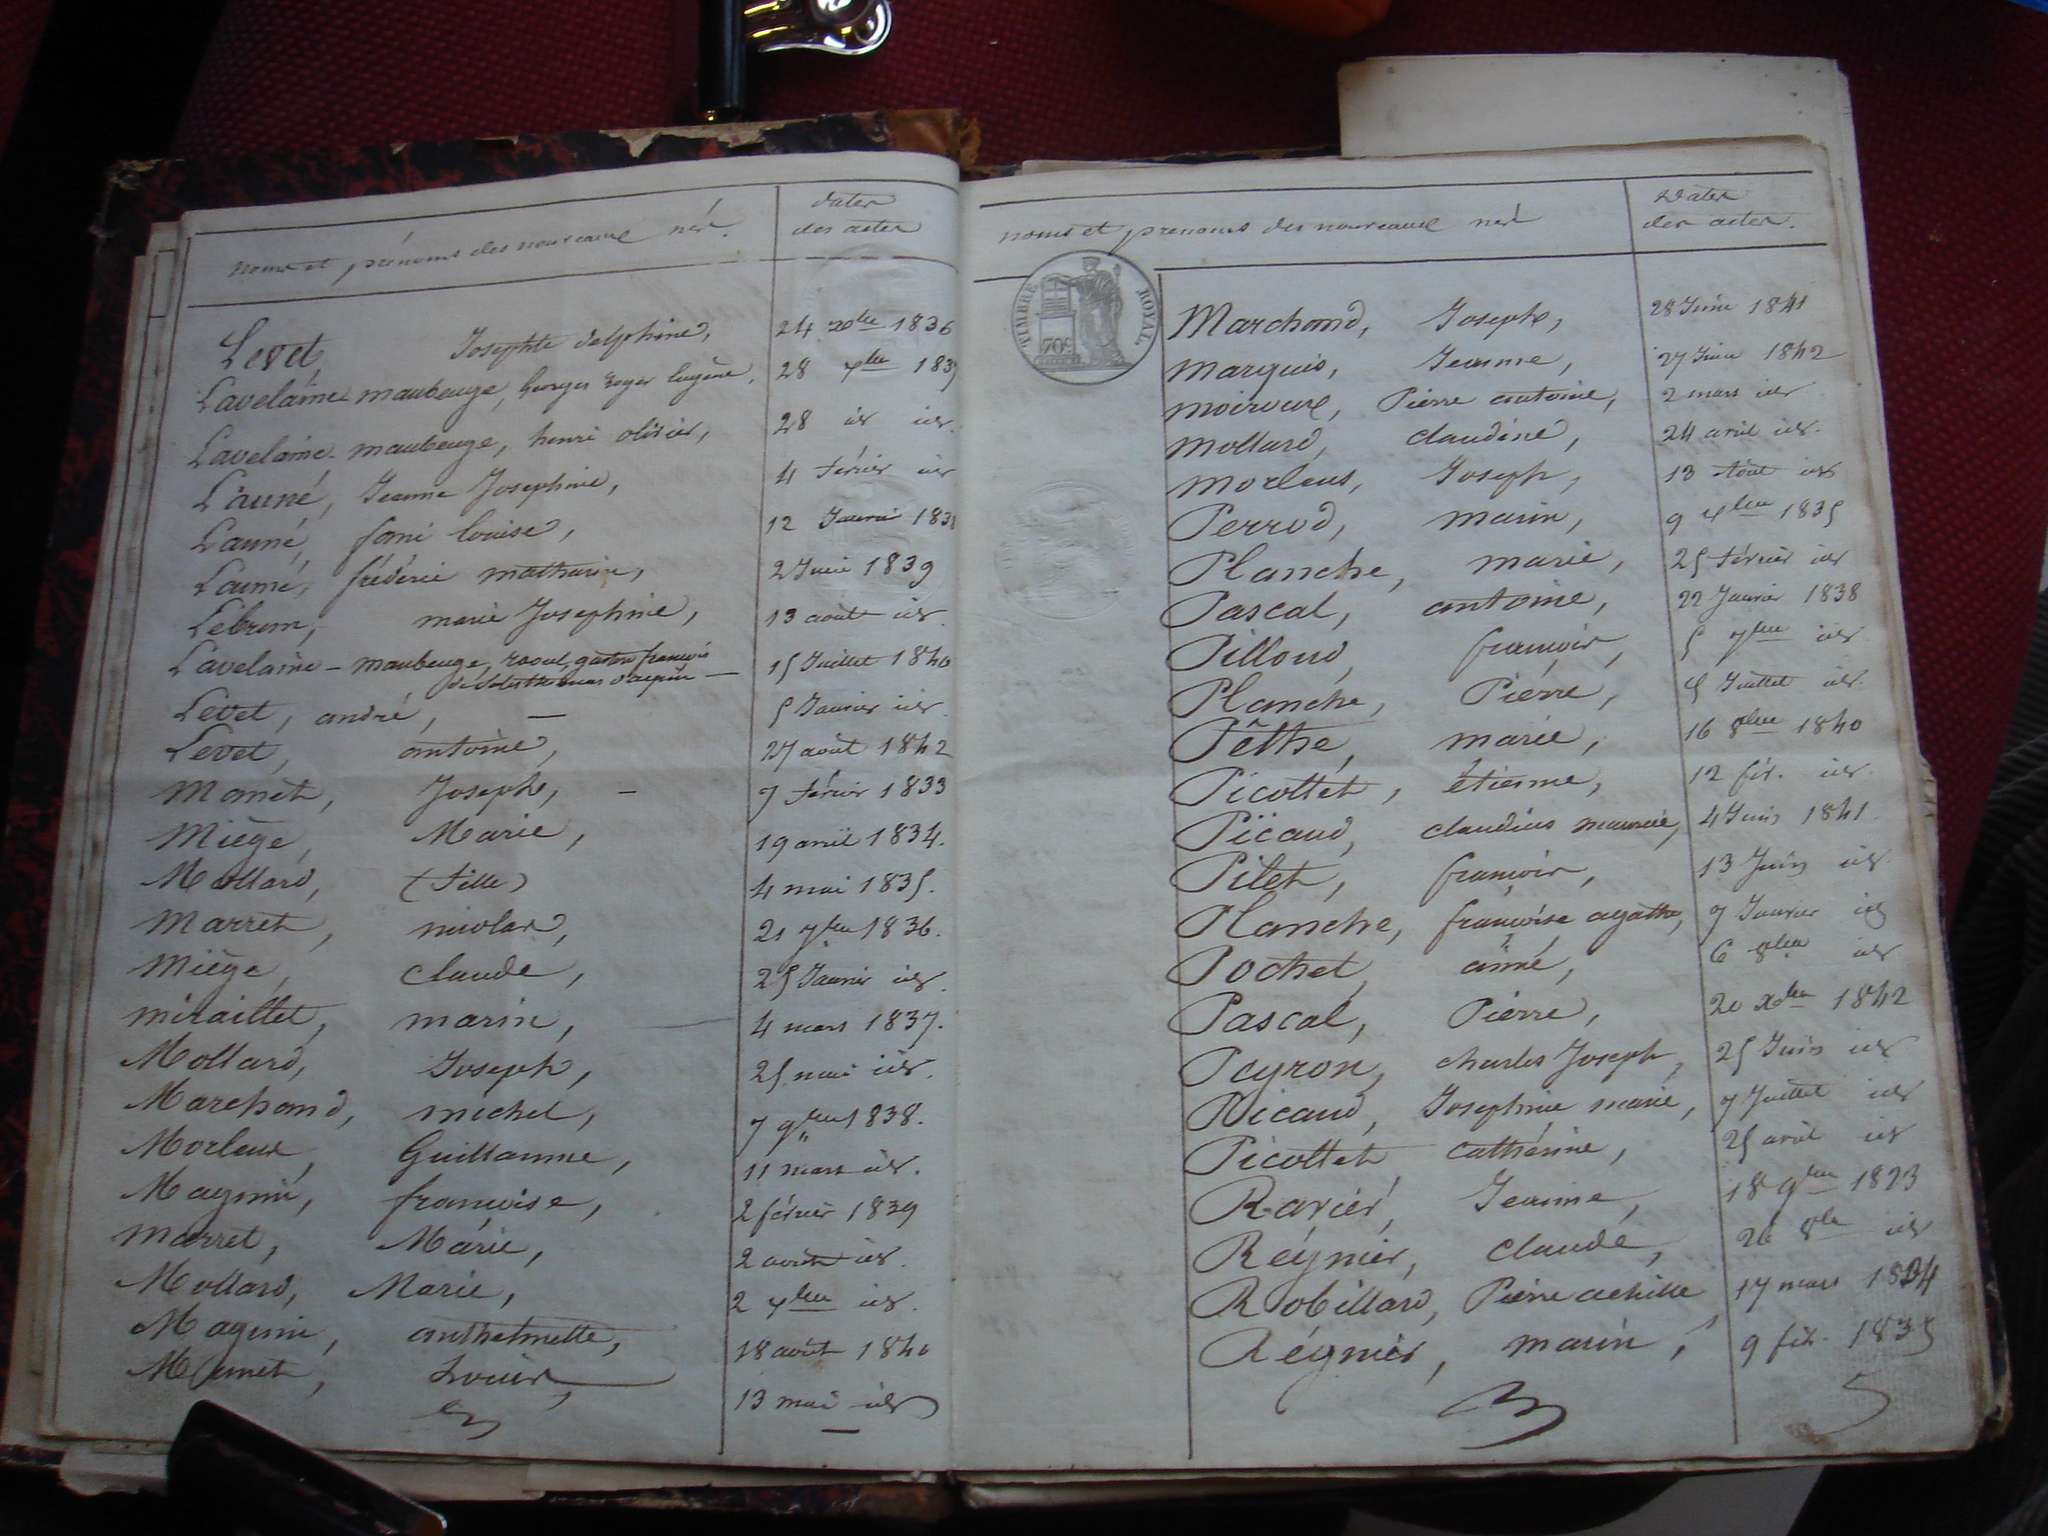 noms et prénoms des nouveaux nés.
dates
des actes
Levet, Josephte delphine, 24 xbre 1836
Lavelaine maubeuge, Georges Roger Eugène, 28 xbre 183
Lavelaine-maubeuge, henri olivier, 28 id id.
Launé, Jeanne Josephine, 4 février id
Launé, fani louise, 12 Janvier 1838
Launé, fréderic mathurin, 2 Juin 1839
Lebrun, marie Josephine, 13 août id.
Lavelaine-maubeuge, raoul, gaston françois 15 Juillet 1840
Levet, andré, — 5 Janvier id.
Levet, antoine, 27 août 1842
Monet, Joseph, - 7 février 1833
Miège, Marie, 19 avril 1834.
Mollard, (fille) 4 mai 1835.
Marret, nicolas, 21 7bre 1836.
Miège, claude, 25 Janvier id.
Miraillet, marin, 4 mars 1837.
Mollard, Joseph, 25 mai id.
Marchand, michel, 7 9bre 1838.
Morleux, Guillaume, 11 mars id.
Magnin, françoise, 2 février 1839
Marret, Marie, 2 août id.
Mollard, Marie, 2 xbre id.
Magnin, anthelmette, 18 août 1840
Monet, Louis, 13 mai id
noms et prénoms des nouveaux nés
Dates
des actes.
TIMBRE ROYAL
70c
Marchand, Joseph, 28 Juin 1841
Marquis, Jeanne, 27 Juin 1842
Moiroux, Pierre antoine, 2 mars id
Mollard, claudine, 24 avril id.
Morleux, Joseph, 13 Août id
Perrod, marin, 9 xbre 1835
Planche, marie, 25 février id
Pascal, antoine, 22 Janvier 1838
Pilloud, françois, 5 7bre id
Planche, Pierre, 5 Juillet id.
Pêthe, marie, 16 8bre 1840
Picottet, étienne, 12 fév. id.
Picaud, claudius maurice, 4 Juin 1841.
Pilet, françois, 13 Juin id
Planche, françoise agathe, 7 Janvier id
Pochet, aimé, 6 8bre id
Pascal, Pierre, 20 xbre 1842
Peyron, charles Joseph, 25 Juin id
Picaud, Josephine marie, 7 Juillet id
Picottet catherine, 25 avril id
Ravier, Jeanne, 18 9bre 1823
Réynier, claude, 26 8bre id
Robillard, Pierre achille 17 mars 1834
Réynier, marin, 9 fév. 1835